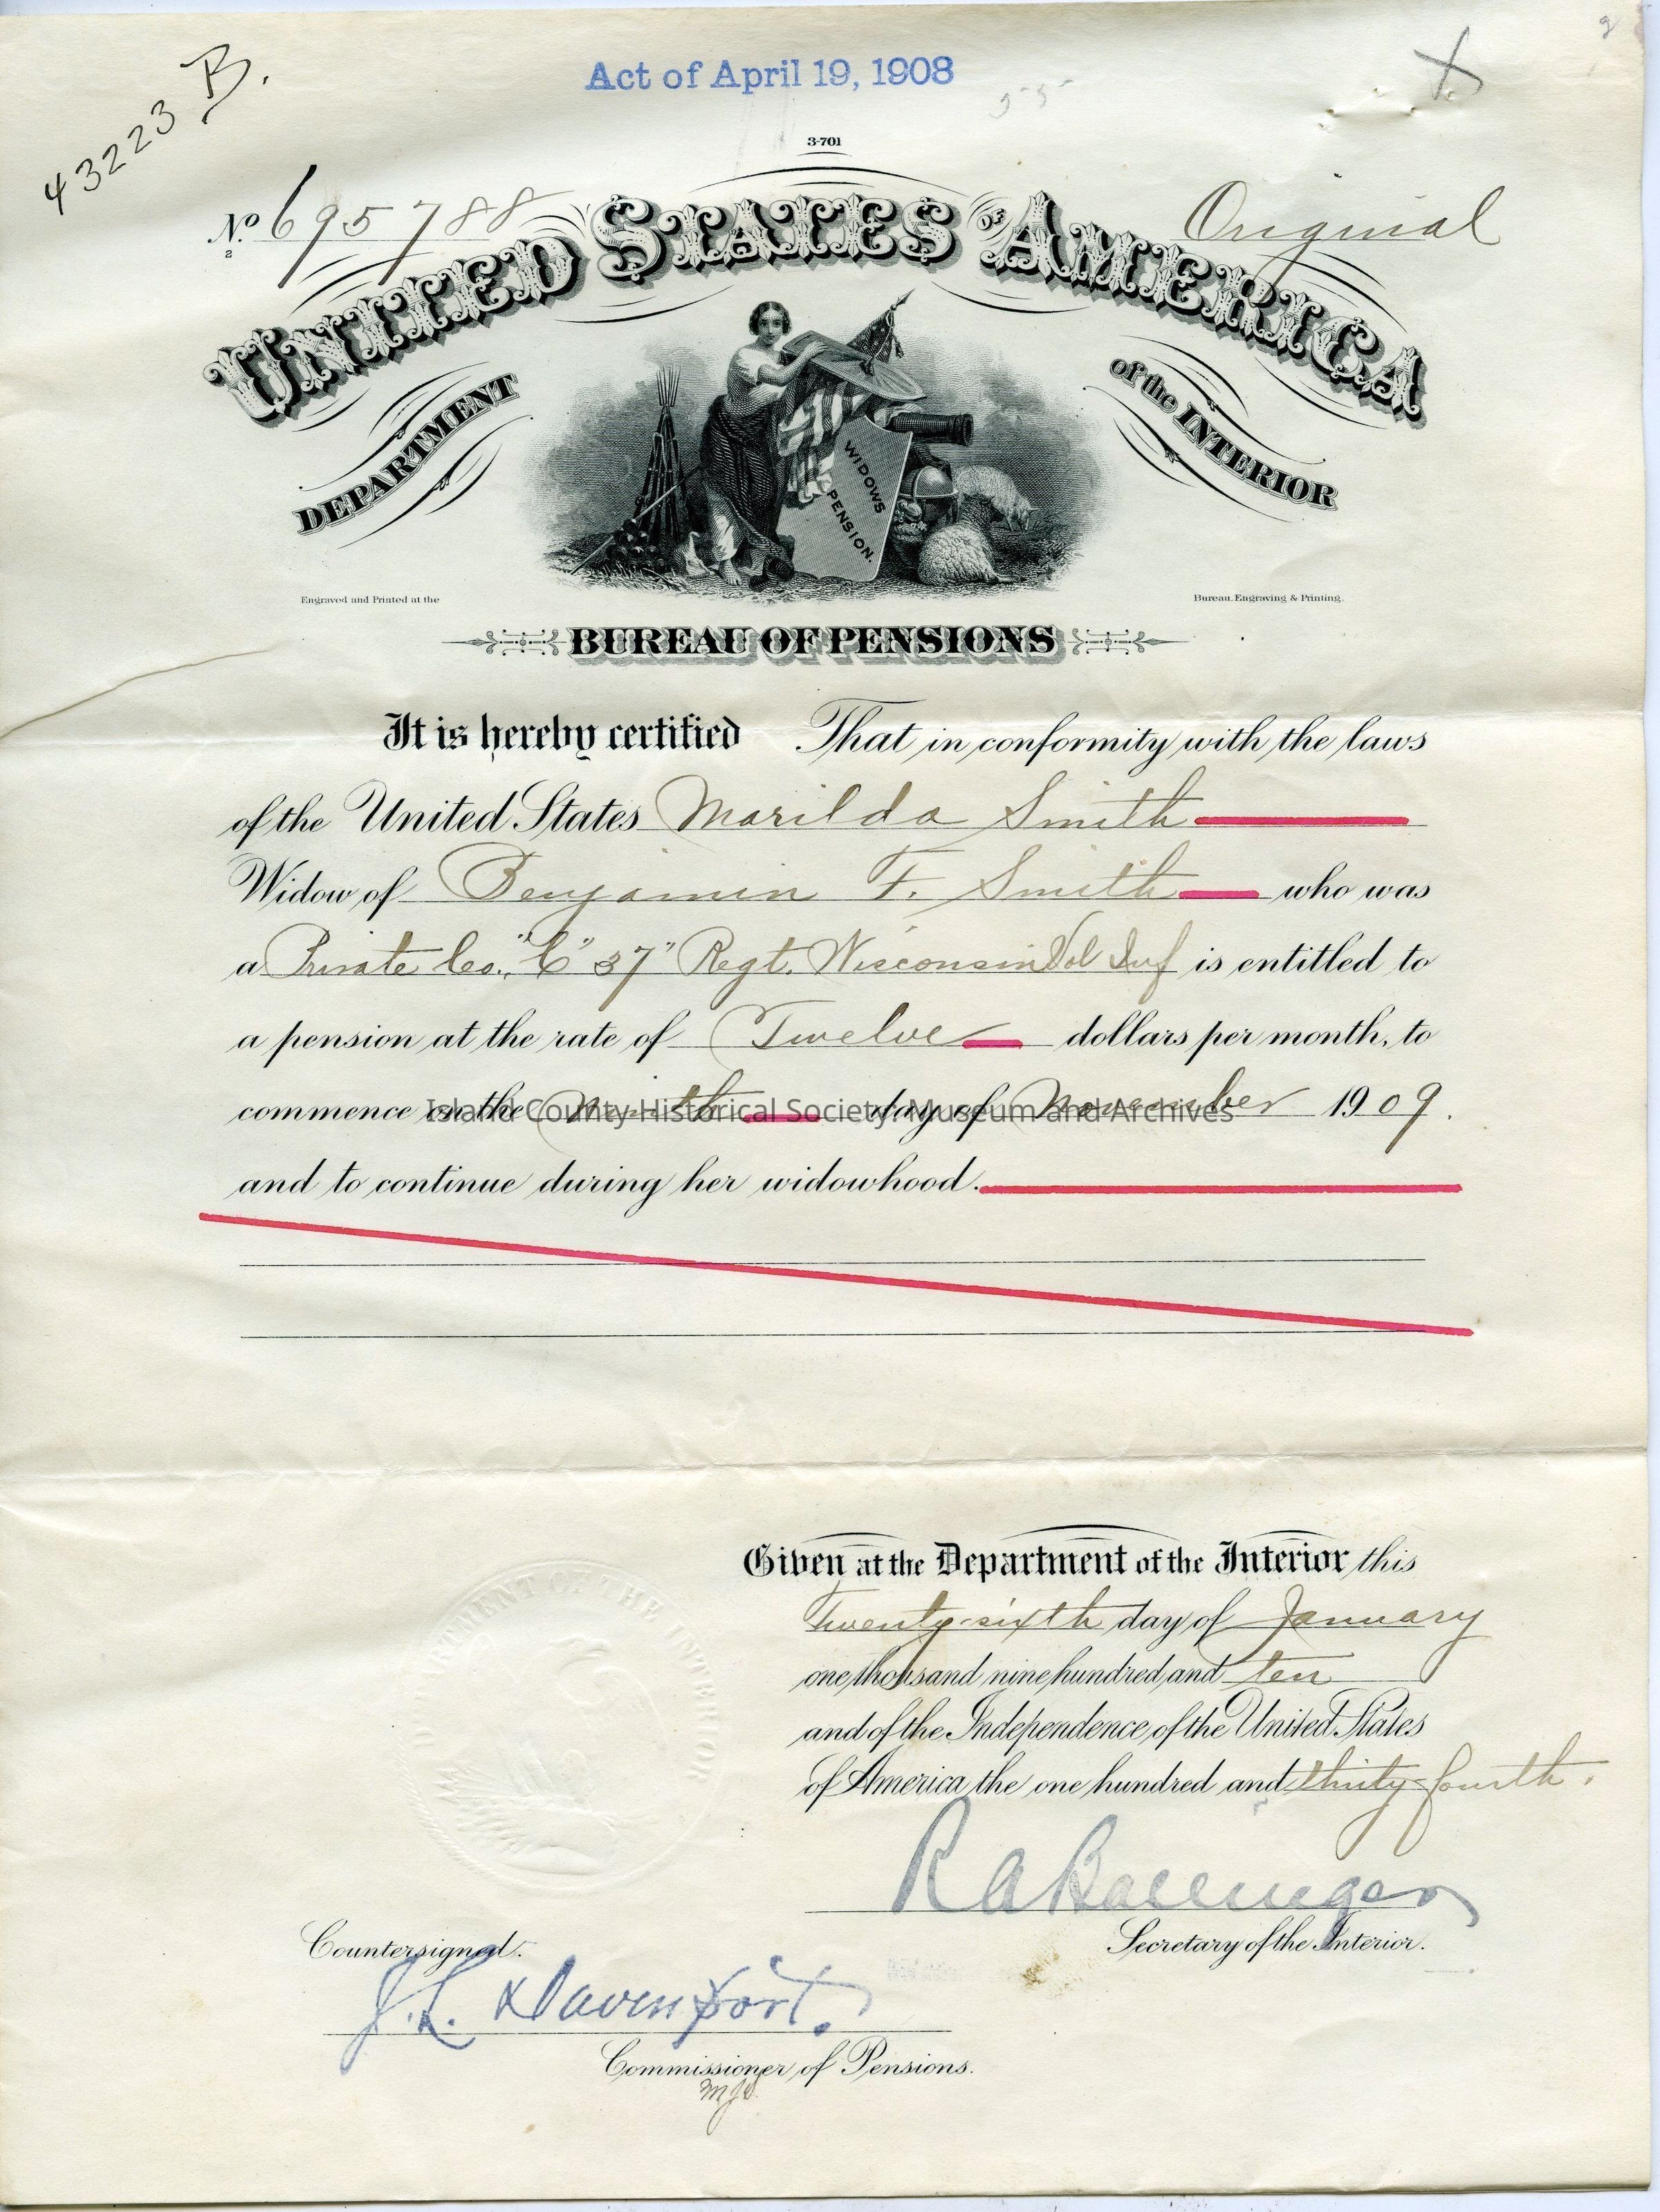 43223 B.
Act of April 19, 1908
3-701
No. 695788
2
Original
UNITED STATES OF AMERICA
DEPARTMENT of the INTERIOR
WIDOWS PENSION.
Engraved and Printed at the Bureau, Engraving & Printing.
BUREAU OF PENSIONS
It is hereby certified That in conformity with the laws
of the United States Marilda Smith
Widow of Benjamin F. Smith who was
a Private Co. "C" 37" Regt. Wisconsin Vol Inf is entitled to
a pension at the rate of Twelve dollars per month, to
commence on the Ninth day of November 1909.
Island County Historical Society Museum and Archives
and to continue during her widowhood.
Given at the Department of the Interior this
Twenty-sixth day of January
one thousand nine hundred and ten
and of the Independence of the United States
of America the one hundred and thirty-fourth.
R A Ballinger
Secretary of the Interior.
Countersigned.
J. L. Davenport.
Commissioner of Pensions.